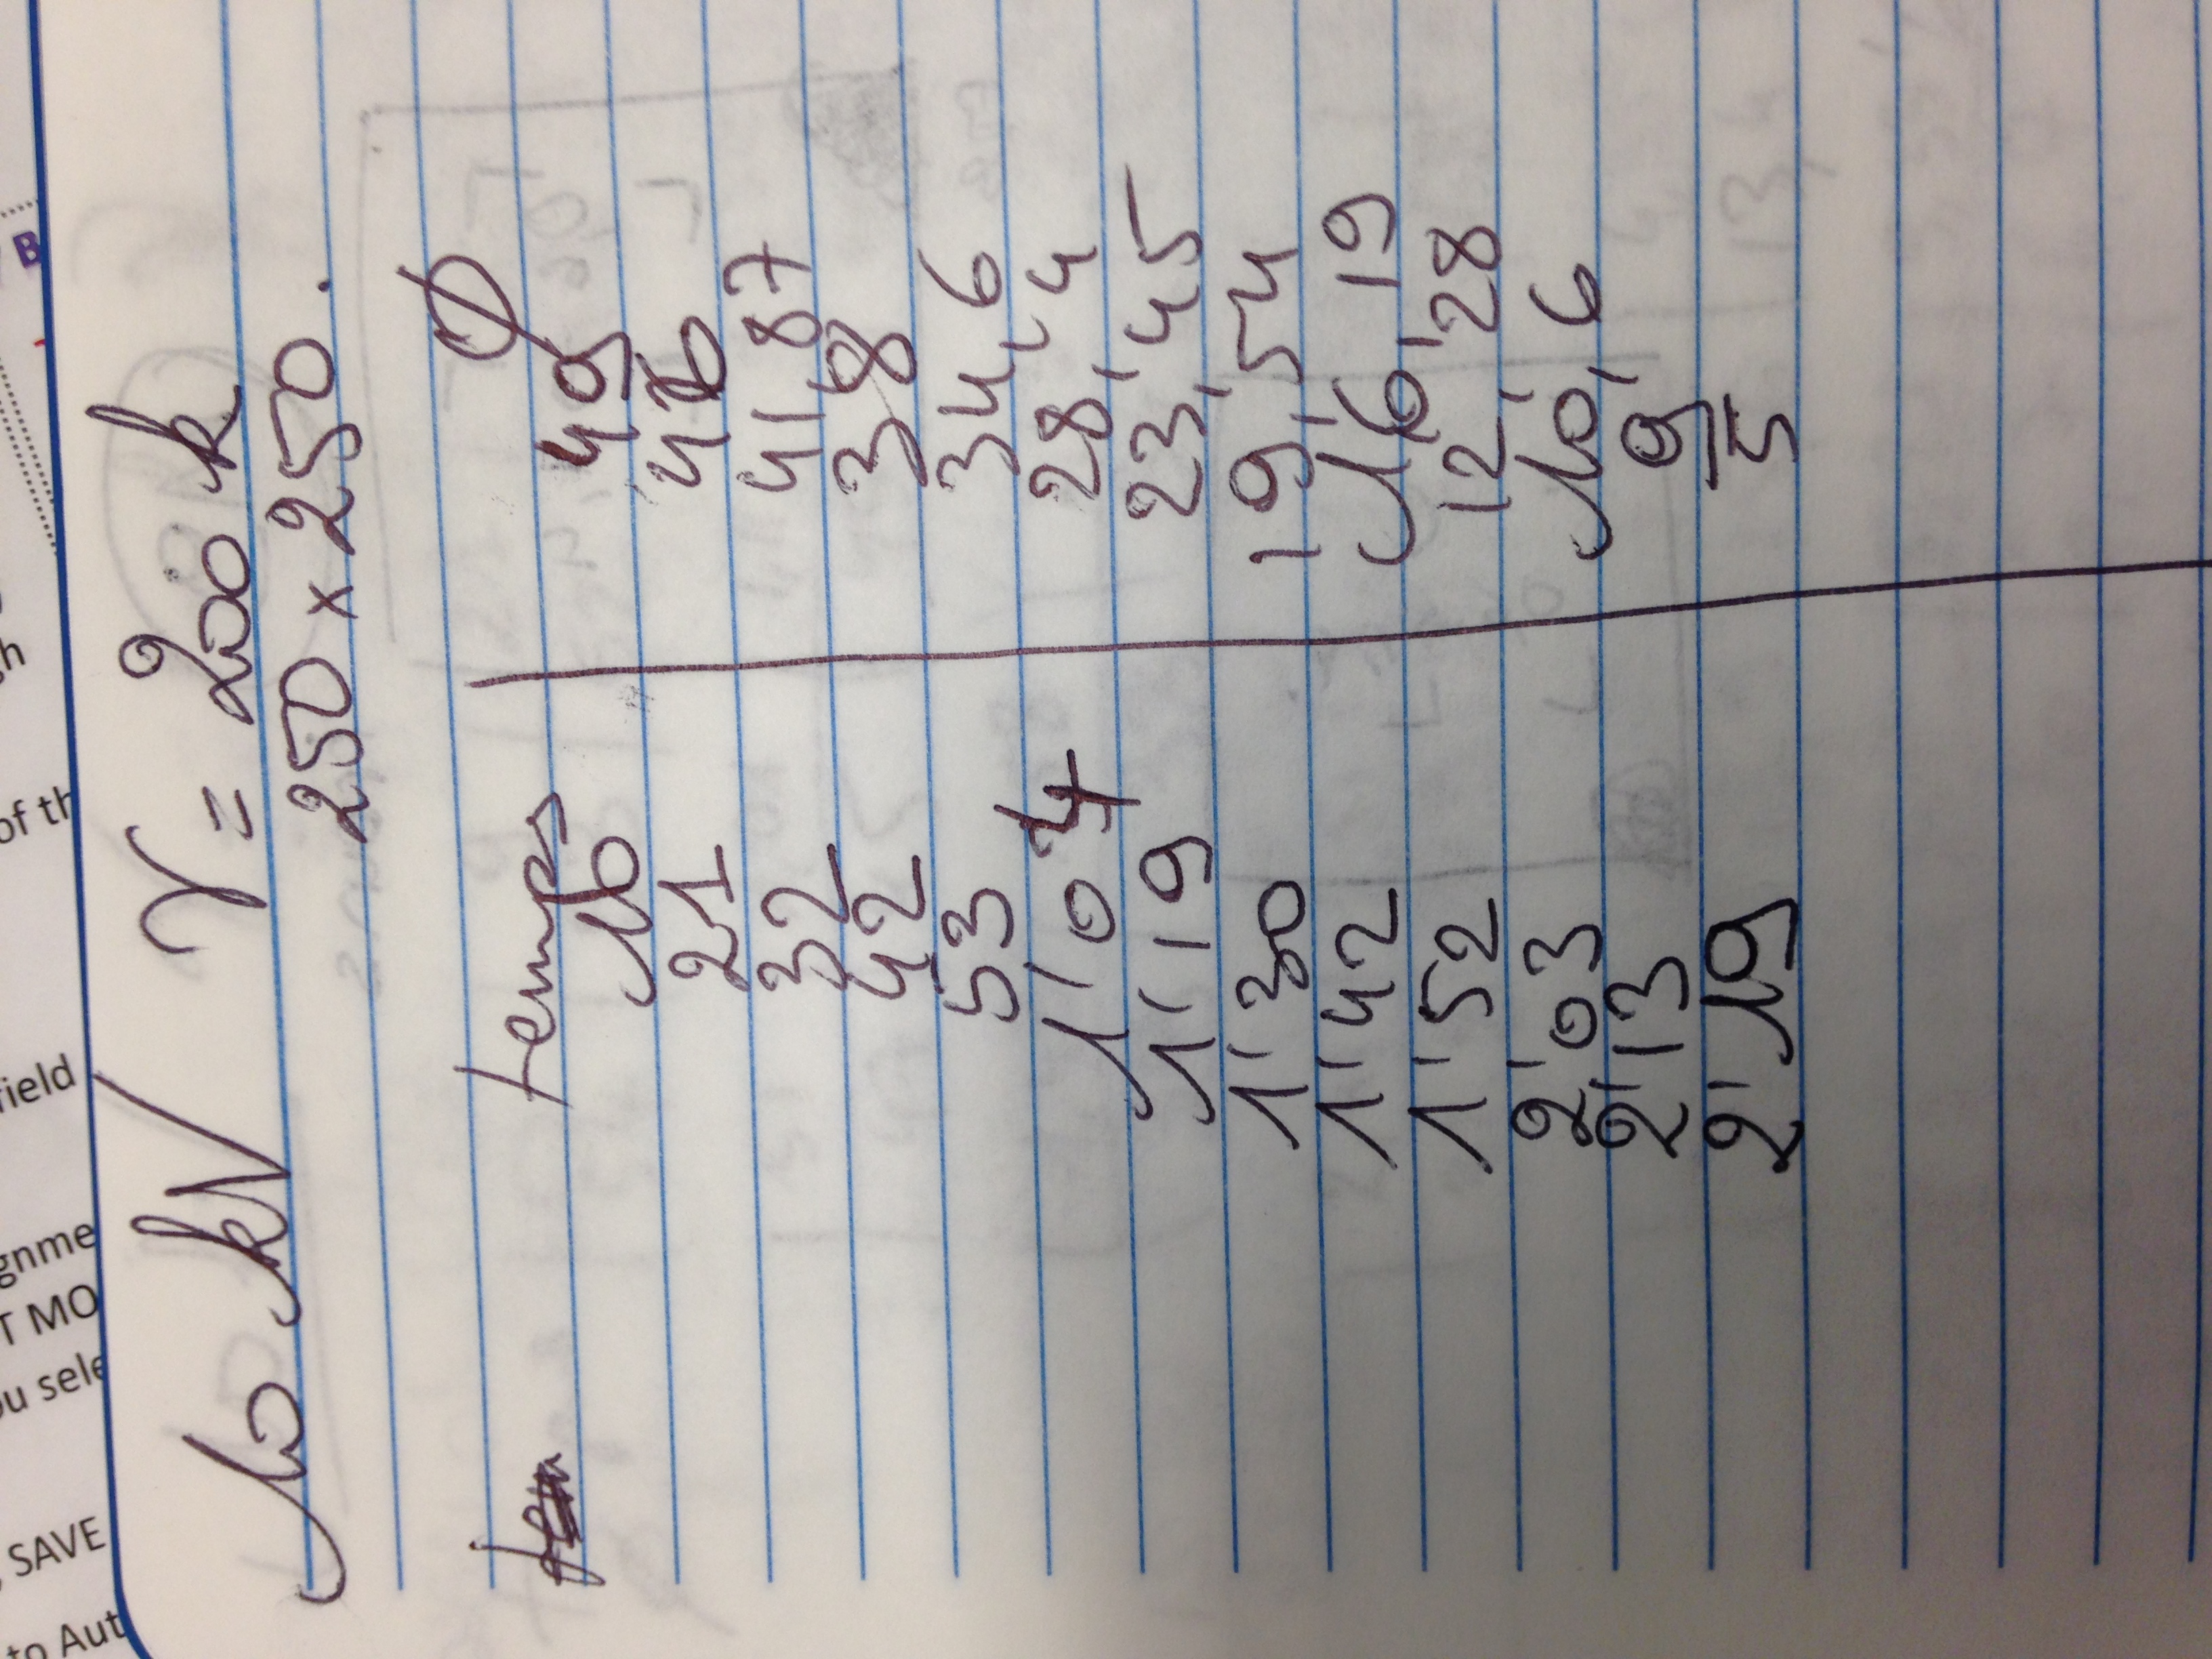 to Aut
, SAVE
ou sele
T MO
gnme
field
of th
B
10 kV γ = 200 k
250 x 250.
temps ϕ
10 49
21 46
32 41,87
42 38
53 34,6
1'04 28,4
1'19 23,45
1'30 19,54
1'42 16,19
1'52 12,28
2'03 10,6
2'13 9
2'19 5